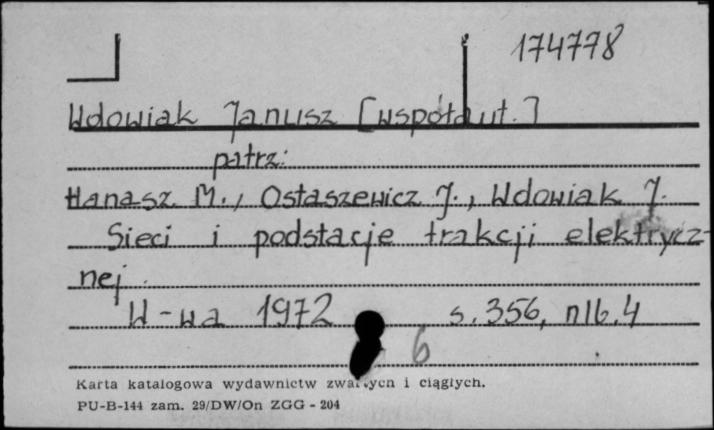 174778
Wdowiak Janusz [współaut.]
patrz:
Hanasz M., Ostaszewicz J., Wdowiak J.
Sieci i podstacje trakcji elektrycz-
nej.
W-wa 1972 s. 356, nlb. 4
6
Karta katalogowa wydawnictw zwartych i ciągłych.
PU-B-144 zam. 29/DW/On ZGG - 204